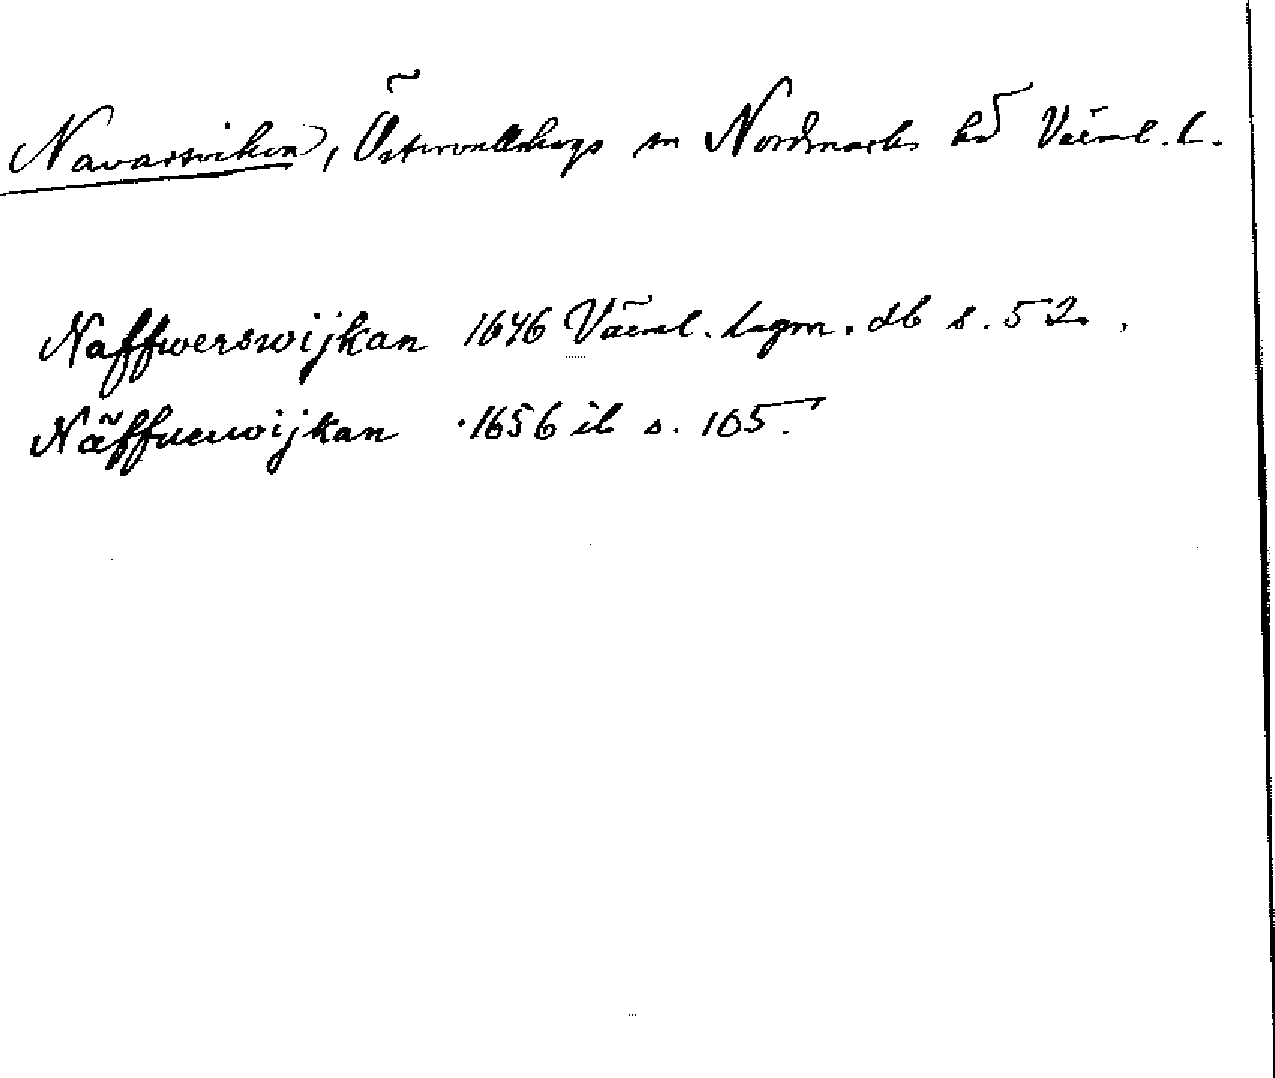 Navarsviken, Östervallskogs sn Nordmarks hd Värml. l.
Naffwerswijkan 1646 Värml. lagm. db s. 52.
Näffuerwijkan 1656 ib s. 105.